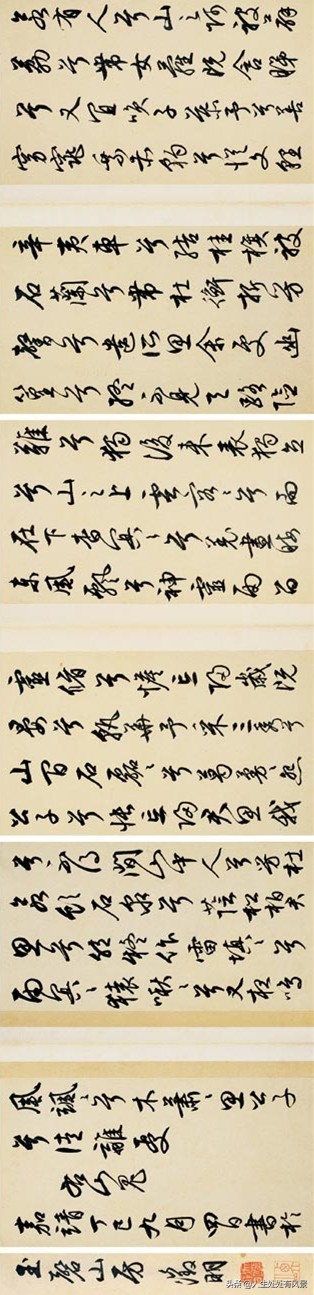 若有人兮山之阿被薜
荔兮帶女蘿既含睇
兮又宜笑子慕予兮善
窈窕乘赤豹兮從文貍
辛夷車兮結桂旗被
石蘭兮帶杜衡折芳
馨兮遺所思余處幽
篁兮終不見天路險
難兮獨後來表獨立
兮山之上雲容々兮而
在下杳冥々兮羌晝晦
東風飄兮神靈雨留
靈脩兮憺忘歸歲既
晏兮孰華予采三秀兮
山間石磊々兮葛蔓々怨
公子兮悵忘歸君思我
兮不得閒山中人兮芳杜
若飲石泉兮蔭松柏君
思兮然疑作雷填々兮
雨冥々猿啾々兮又狖鳴
風颯々兮木蕭々思公子
兮徒離憂
右山鬼
嘉靖丁巳九月四日書於
玉磬山房 徵明
头条@人生处处有风景